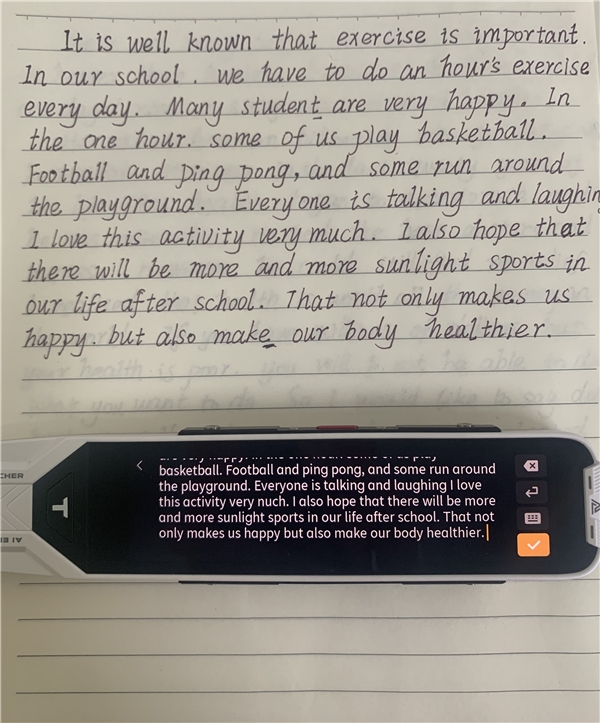 It is well known that exercise is important.
In our school. we have to do an hour's exercise
every day. Many student are very happy. In
the one hour. some of us play basketball.
Football and ping pong, and some run around
the playground. Everyone is talking and laughin
I love this activity very much. I also hope that
there will be more and more sunlight sports in
our life after school. That not only makes us
happy. but also make our body healthier.
CHER
T
are very happy. In the one hour. some of us play
basketball. Football and ping pong, and some run around
the playground. Everyone is talking and laughing I love
this activity very nuch. I also hope that there will be more
and more sunlight sports in our life after school. That not
only makes us happy but also make our body healthier.